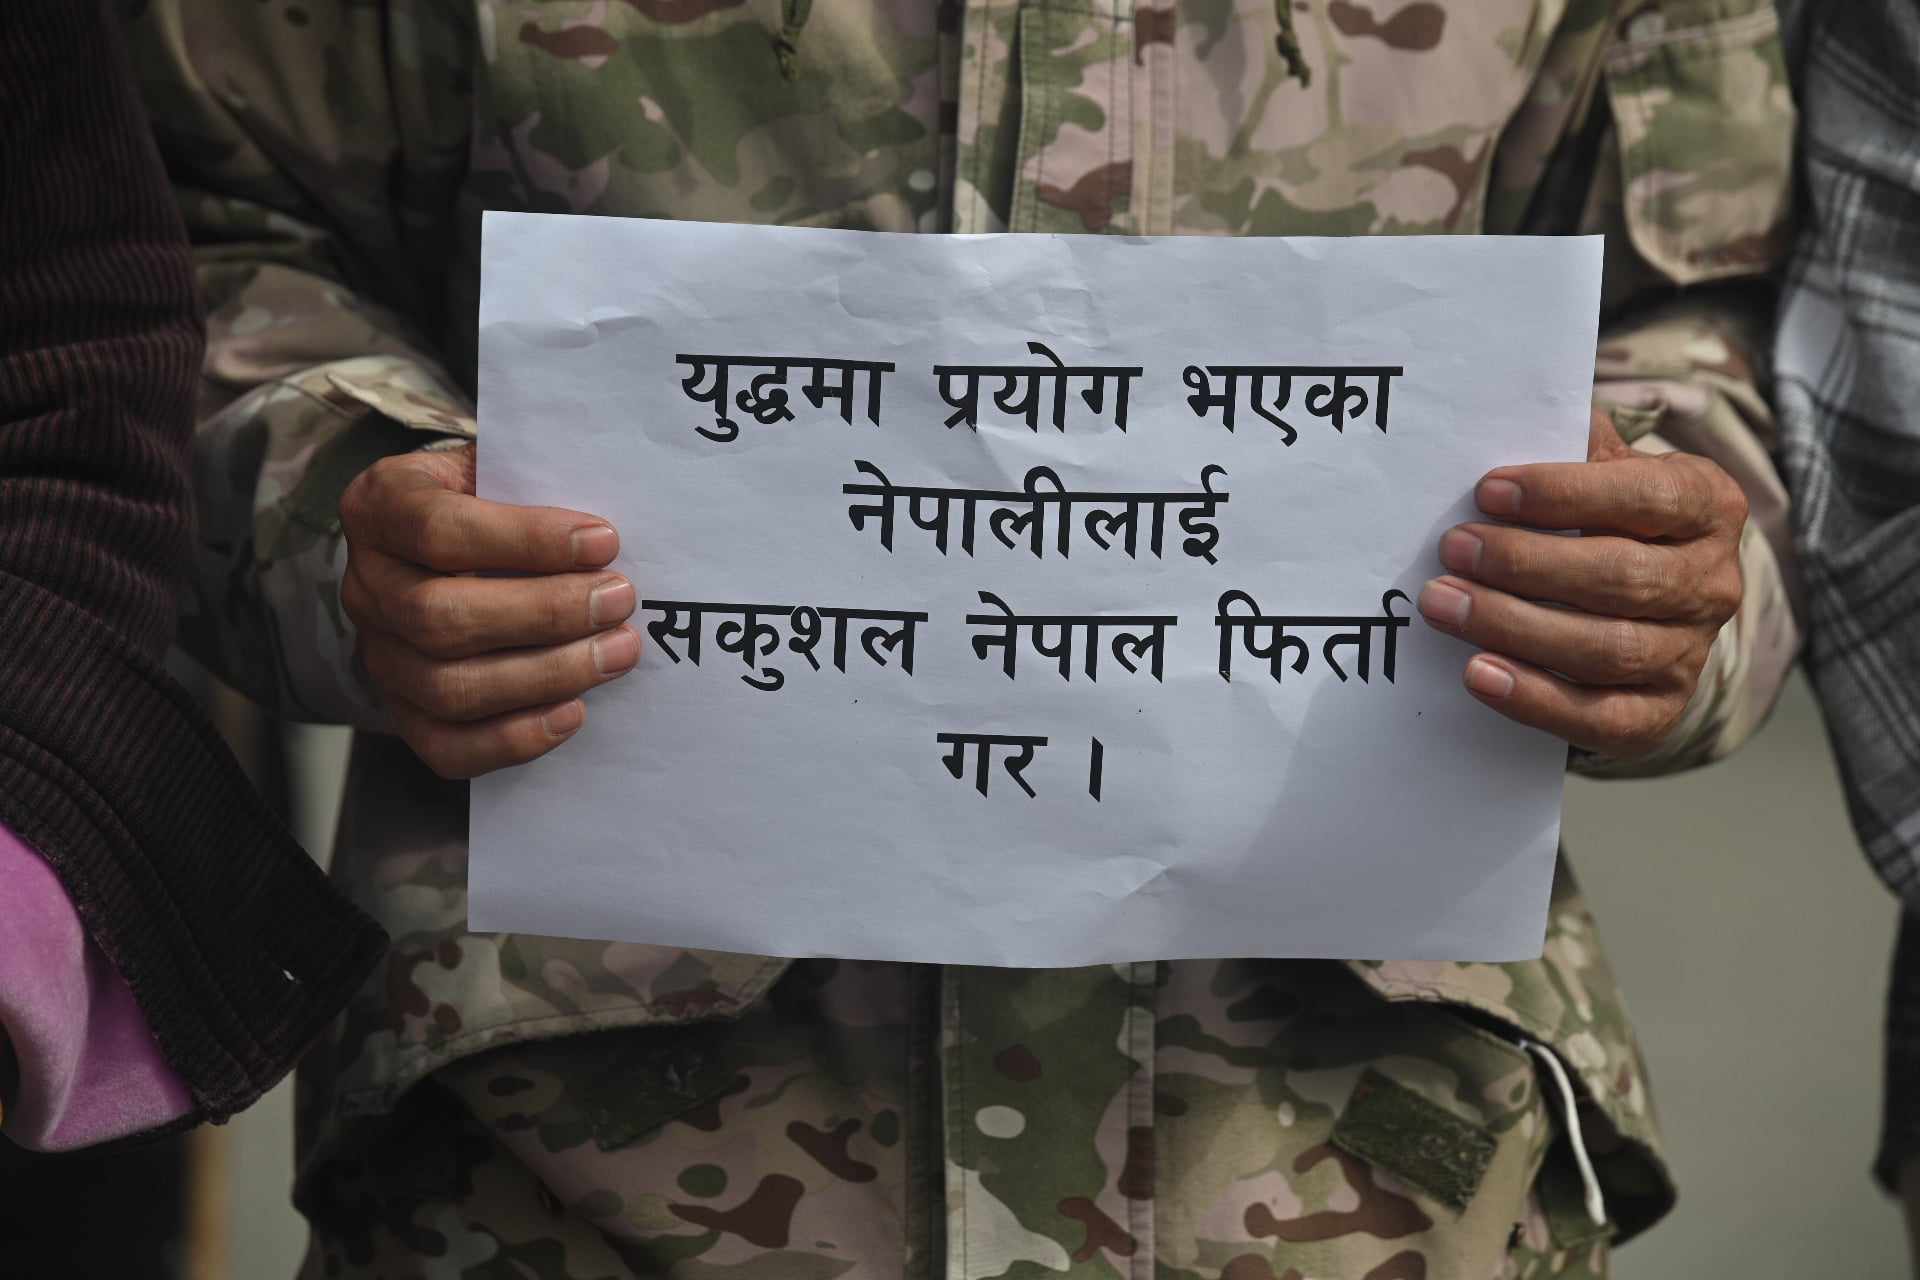 युद्धमा प्रयोग भएका
नेपालीलाई
सकुशल नेपाल फिर्ता
गर ।